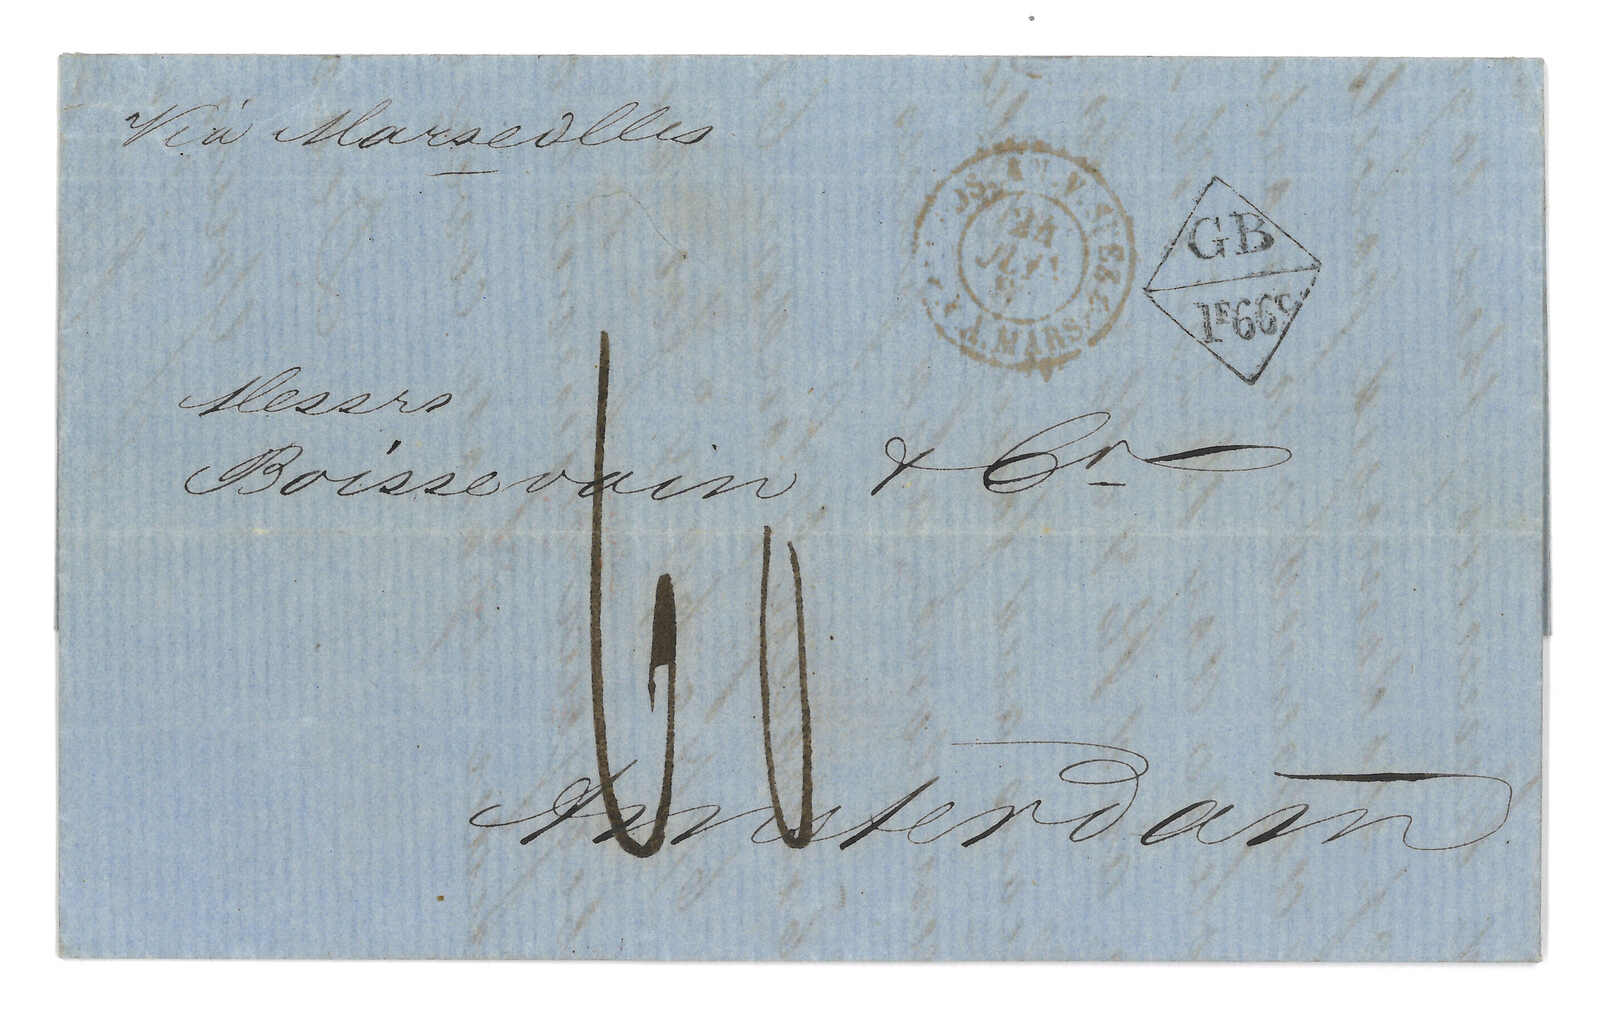 Viá Marseilles
GB
1F66c
Messrs
Boissevain & Co
60
Amsterdam